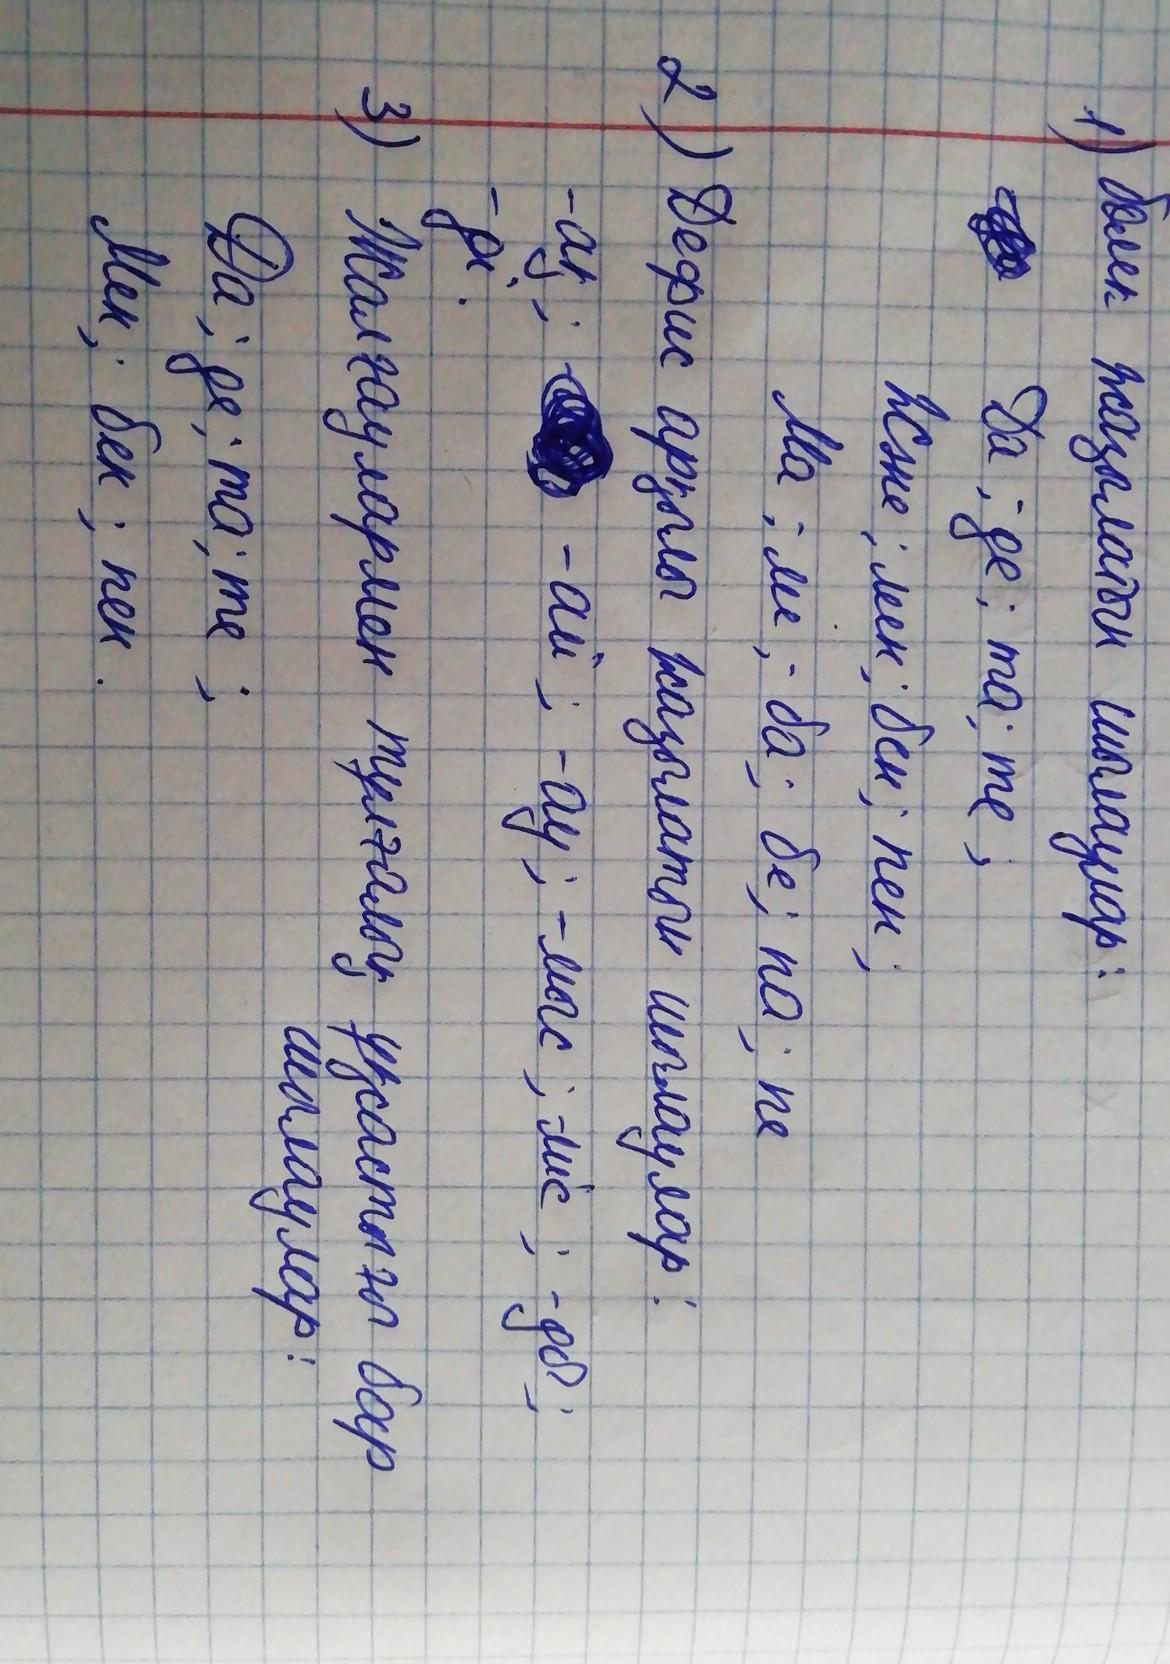 1) бөлек жазылатын шылаулар:
Да; де; та; те;
Және; мен; бен; пен;
Ма; ме; ба; бе; па; пе
2) Дефис арқылы жазылатын шылаулар:
-ақ; -ай; -ау; -мыс; -міс; -ды;
-ді.
3) Жалғаулармен тұлғалық ұқсастығы бар
шылаулар:
Да; де; та; те;
Мен; бен; пен.